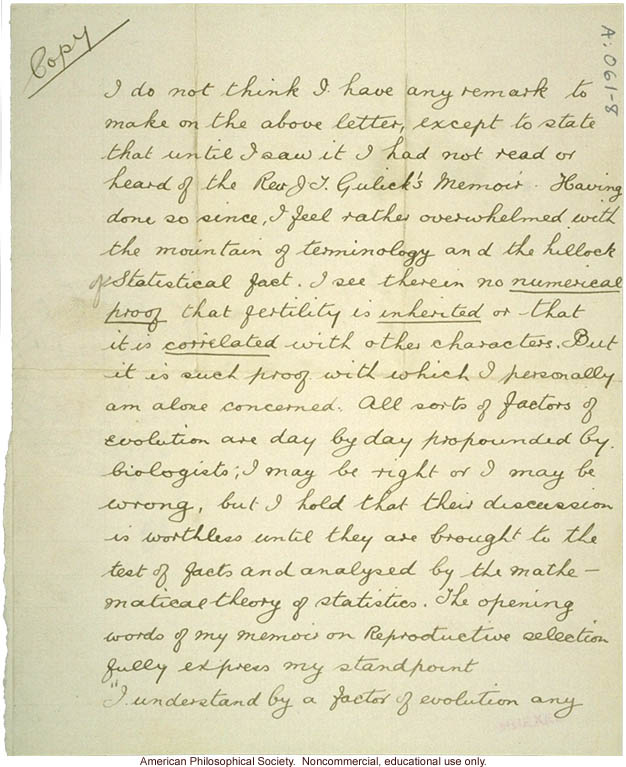 Copy
A:061-8
I do not think I have any remark to
make on the above letter, except to state
that until I saw it I had not read or
heard of the Rev J.T. Gulick's Memoir. Having
done so since, I feel rather overwhelmed with
the mountain of terminology and the hillock
of Statistical fact. I see therein no numerical
proof that fertility is inherited or that
it is correlated with other characters. But
it is such proof with which I personally
am alone concerned. All sorts of factors of
evolution are day by day propounded by
biologists; I may be right or I may be
wrong, but I hold that their discussion
is worthless until they are brought to the
test of facts and analysed by the mathe-
matical theory of statistics. The opening
words of my memoir on Reproductive selection
fully express my standpoint
"I understand by a factor of evolution any
American Philosophical Society. Noncommercial, educational use only.